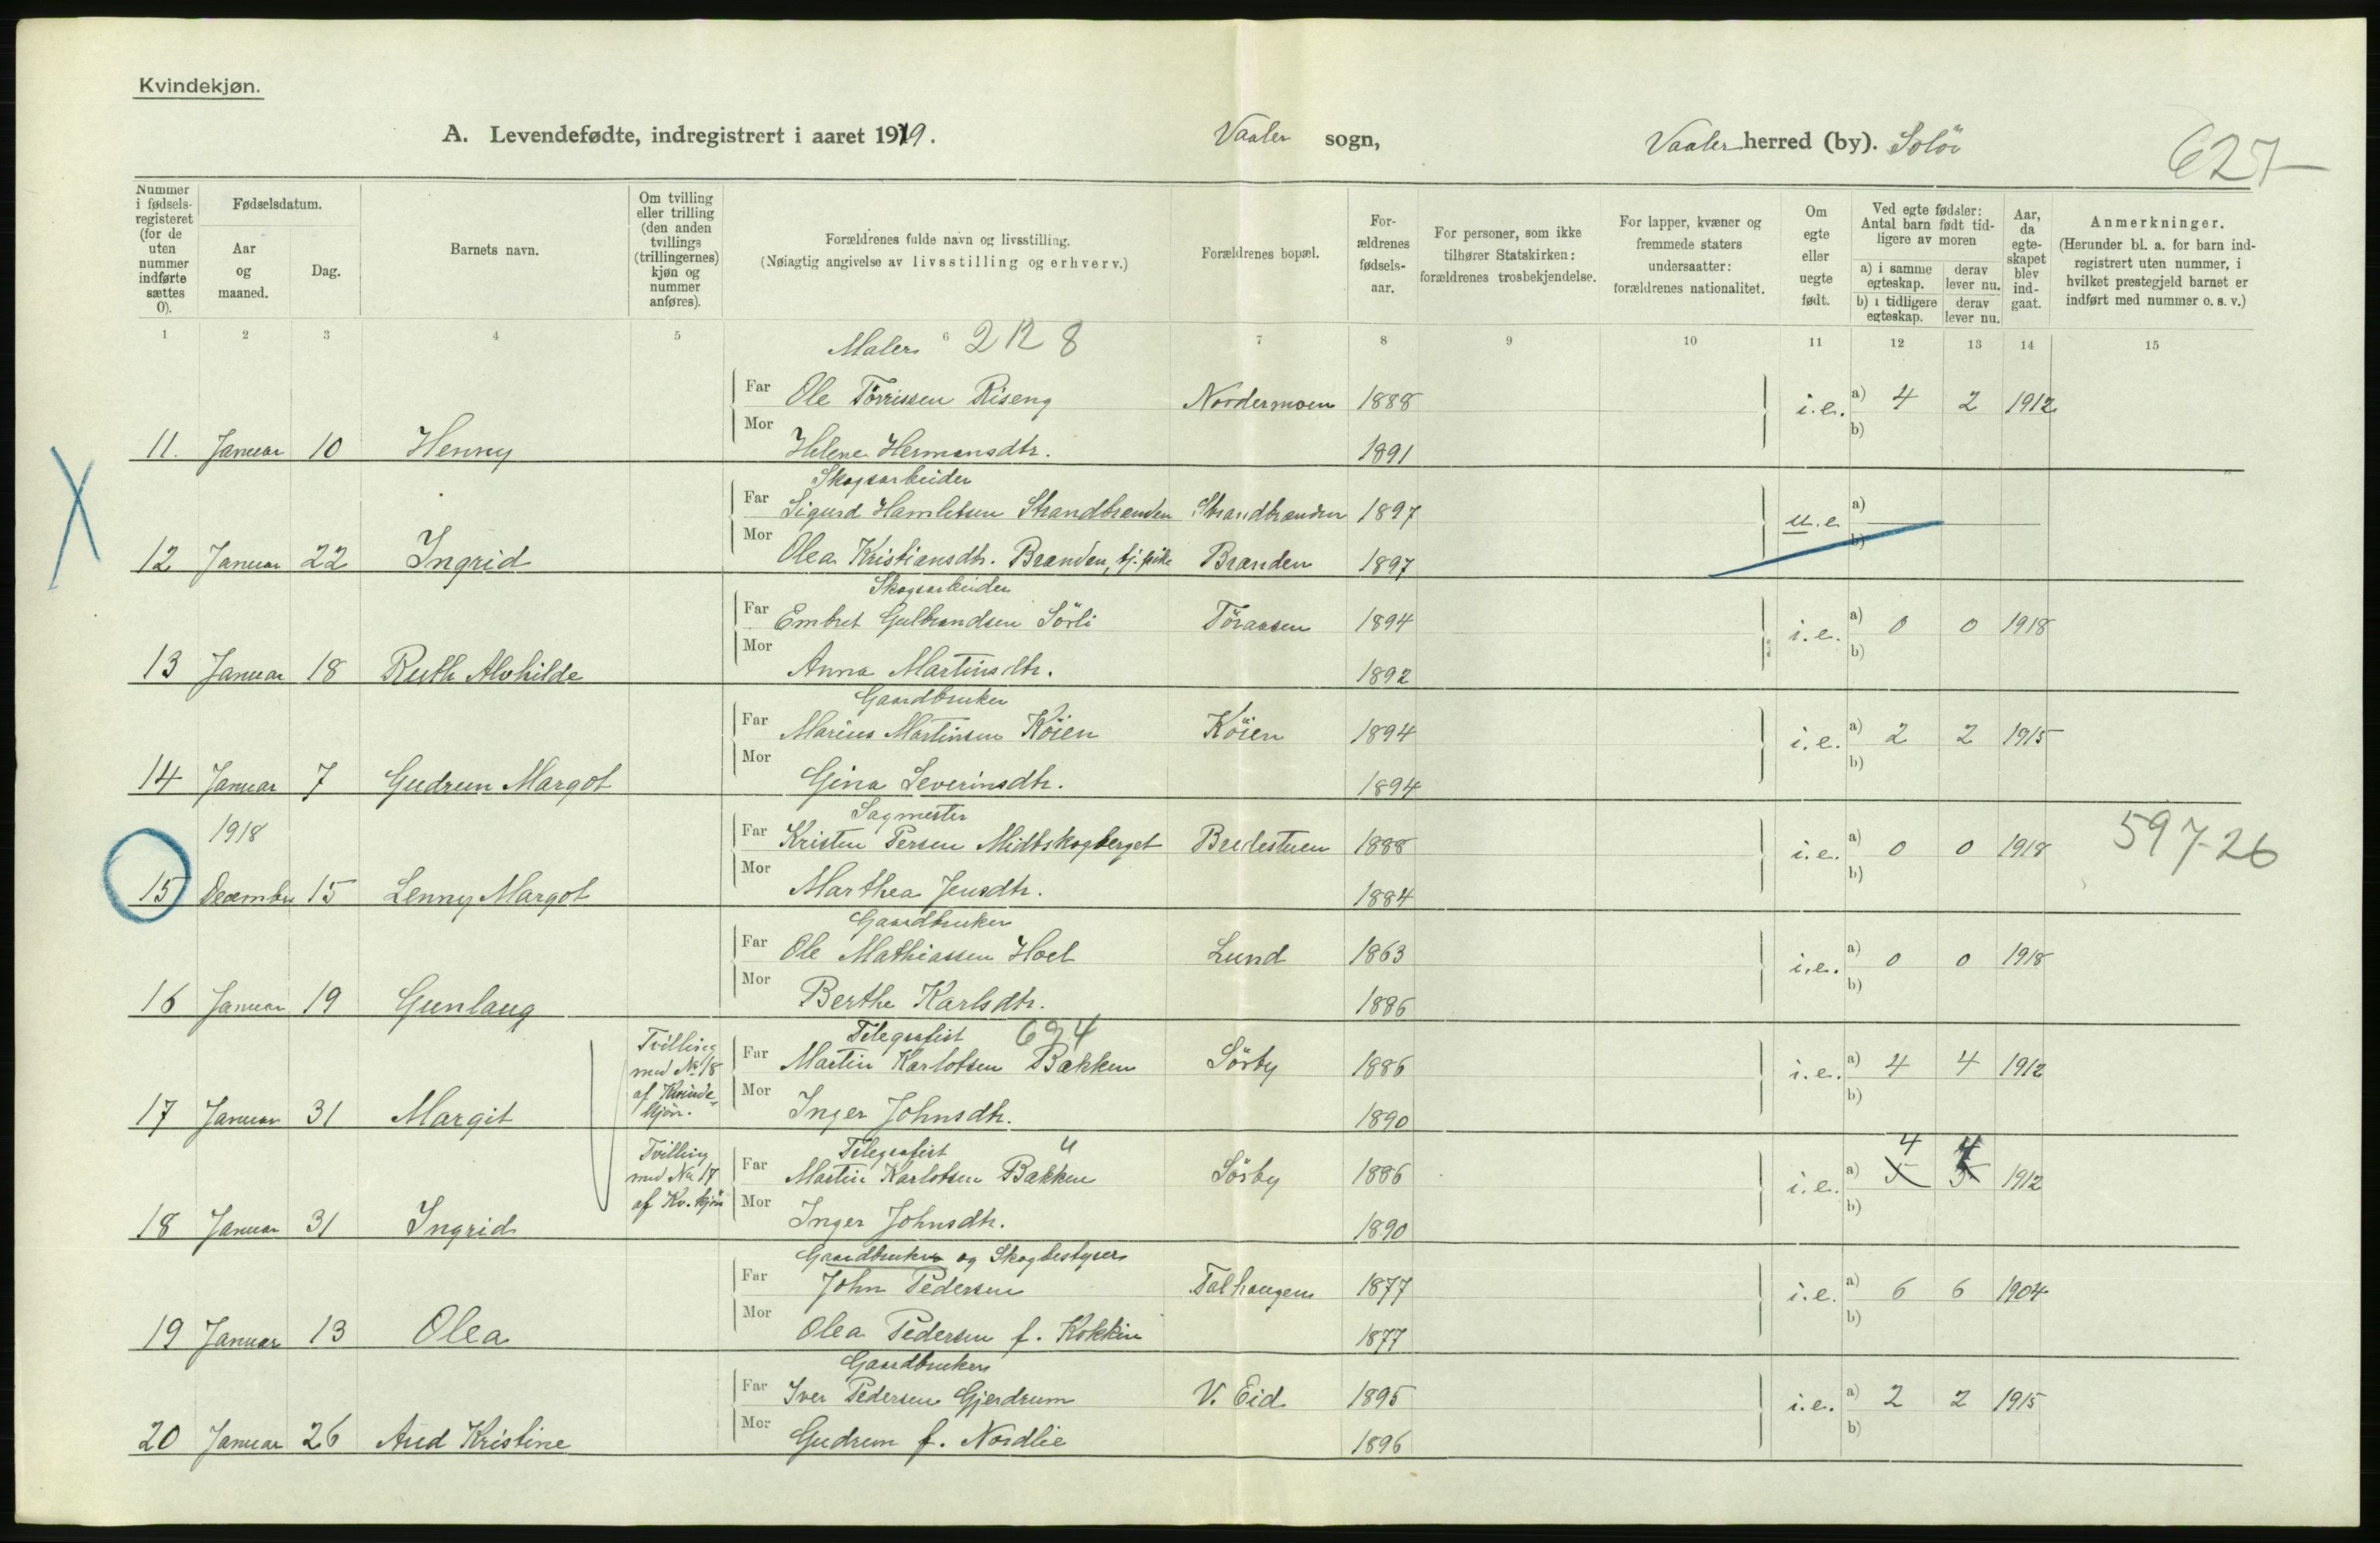 Kvindekjøn.
A. Levendefødte, indregistrert i aaret 1919.
Vaaler sogn,
Vaaler herred (by). Solör
627
Nummer i fødsels-registeret (for de uten nummer indførte sættes 0).
Fødselsdatum.
Aar og maaned.
Dag.
Barnets navn.
Om tvilling eller trilling (den anden tvillings (trillingernes) kjøn og nummer anføres).
Forældrenes fulde navn og livsstilling.
(Nøiagtig angivelse av livsstilling og erhverv.)
Forældrenes bopæl.
For-ældrenes fødsels-aar.
For personer, som ikke tilhører Statskirken: forældrenes trosbekjendelse.
For lapper, kvæner og fremmede staters undersaatter: forældrenes nationalitet.
Om egte eller uegte født.
Ved egte fødsler: Antal barn født tid-ligere av moren
a) i samme egteskap.
derav lever nu.
b) i tidligere egteskap.
derav lever nu.
Aar, da egte-skapet blev ind-gaat.
Anmerkninger.
(Herunder bl. a. for barn ind-registrert uten nummer, i hvilket prestegjeld barnet er indført med nummer o. s. v.)
1 2 3 4 5 6 7 8 9 10 11 12 13 14 15
Maler 212 8
Far Ole Törrissen Riseng Nordermoen 1888 i.e. a) 4 2 1912
Mor b)
11. Januar 10 Henny Helene Hermansdtr. 1891
Skogsarbeider
Far Sigurd Hamletsen Strandbranden Strandbranden 1897 u.e. a)
Mor b)
12 Januar 22 Ingrid Olea Kristiansdtr. Branden, tj. pike Branden 1897
Skogsarbeider
Far Embret Gulbrandsen Sörli Töraasen 1894 i.e. a) 0 0 1918
Mor b)
13 Januar 18 Ruth Alvhilde Anna Martinsdtr. 1892
Gaardbruker
Far Marius Martinsen Köien Köien 1894 i.e. a) 2 2 1915
Mor b)
14 Januar 7 Gudrun Margot Gina Severinsdtr. 1894
1918 Sagmester
Far Kristen Persen Midtskogberget Bredestuen 1888 i.e. a) 0 0 1918 597-26
Mor b)
15 December 15 Lenny Margot Marthea Jensdtr. 1884
Gaardbruker
Far Ole Mathiassen Hoel Lund 1863 i.e. a) 0 0 1918
Mor b)
16 Januar 19 Gunlaug Berthe Karlsdtr. 1886
Tvilling med No 18 af Kvinde-kjön.
Telegrafist 694
Far Martin Karlotsen Bakken Sörby 1886 i.e. a) 4 4 1912
Mor b)
17 Januar 31 Margit Inger Johnsdtr. 1890
Tvilling med No 17 af Kv. kjön
Telegrafist 4 4
Far Martin Karlotsen Bakken Sörby 1886 i.e. a) 5 5 1912
Mor b)
18 Januar 31 Ingrid Inger Johnsdtr. 1890
Gaardbruker og Skogbestyrer
Far John Pedersen Talhaugen 1877 i.e. a) 6 6 1904
Mor b)
19 Januar 13 Olea Olea Pedersen f. Kokkin 1877
Gaardbruker
Far Iver Pedersen Gjerdrum V. Eid 1895 i.e. a) 2 2 1915
Mor b)
20 Januar 26 Aud Kristine Gudrun f. Nordlie 1896